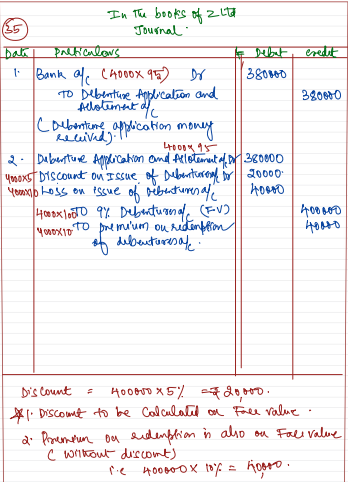 In The books of Z Ltd
Journal.
35
Date Particulars Debit Credit
1. Bank a/c (4000 x 95) Dr 380000
To Debenture Application and 380000
Allotment a/c
(Debenture application money
received).
4000 x 95
2. Debenture Application and Allotment a/c Dr 380000
4000x5 Discount on Issue of Debentures a/c Dr 20000.
4000x10 Loss on issue of Debentures a/c 40000
4000x100 To 9% Debentures a/c (F-V) 400000
4000x10 To premium on redemption 40000
of debentures a/c.
Discount = 400000 x 5% = ₹ 20,000.
1. Discount to be Calculated on Face value.
2. Premium on redemption is also on Face value
(without discount)
i.e 400000 x 10% = 40,000.